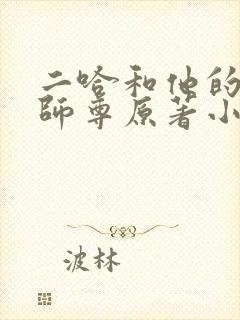 二哈和他的
師尊原著小
波林